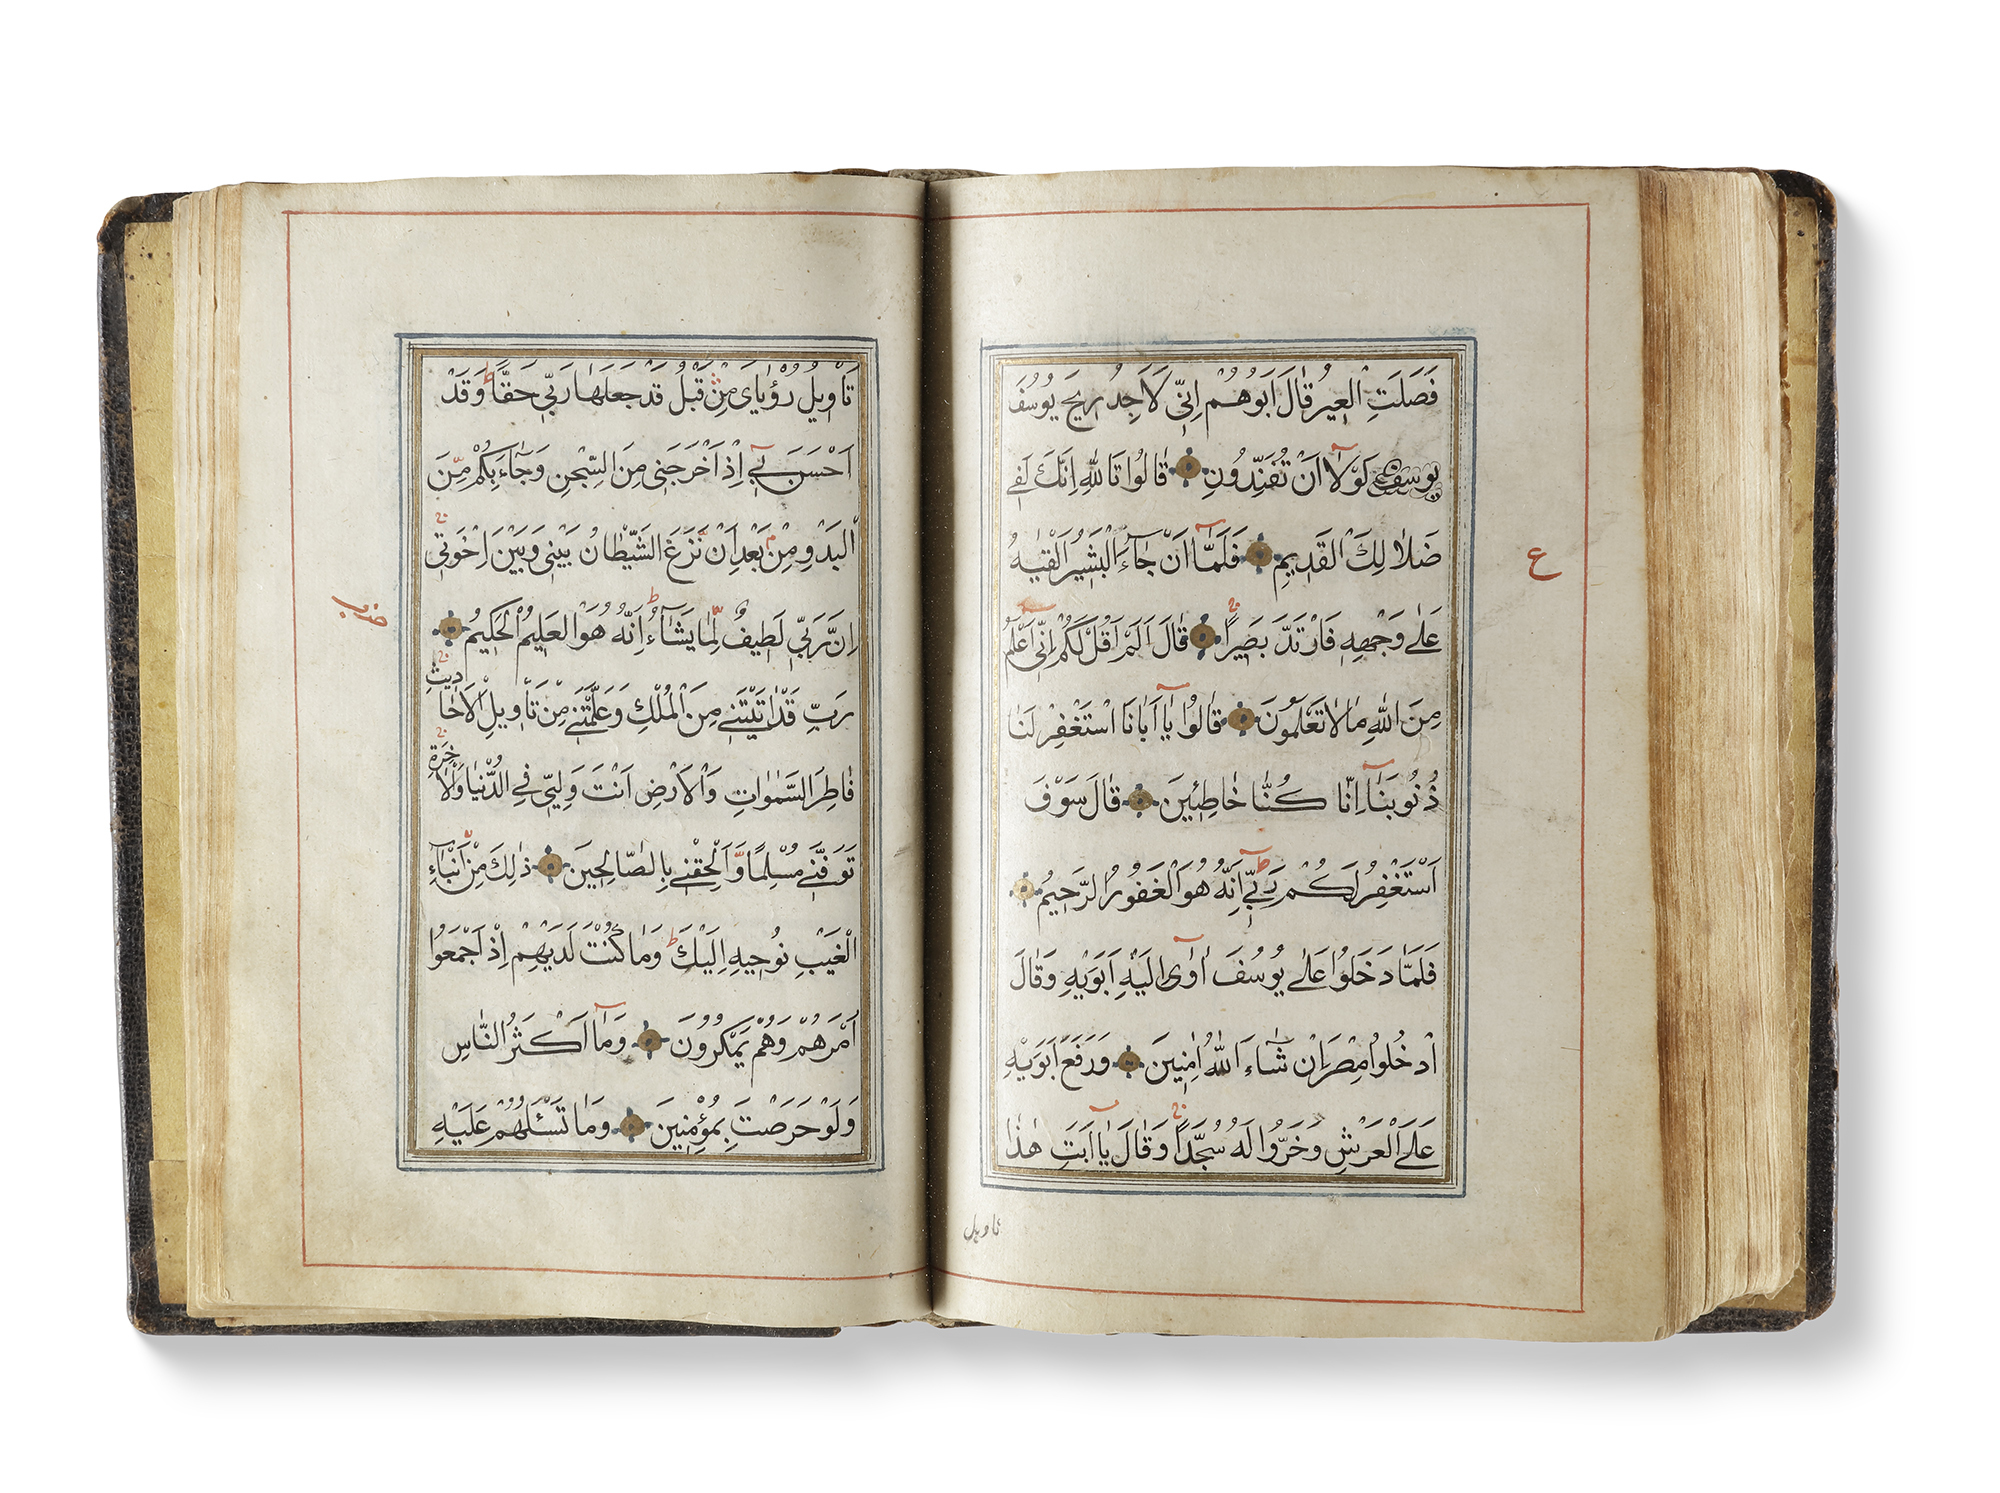 فَصَلَتِ الْعِيرُ قَالَ اَبُوهُمْ اِنِّى لَاَجِدُ رِيحَ يُوسُفَ
يوسف لَوْلَآ اَنْ تُفَنِّدُونِ قَالُوا تَاللّٰهِ اِنَّكَ لَفِى
ضَلَالِكَ الْقَدِيمِ فَلَمَّآ اَنْ جَآءَ الْبَشِيرُ اَلْقٰيهُ
عَلٰى وَجْهِهِ فَارْتَدَّ بَصِيرًا قَالَ اَلَمْ اَقُلْ لَكُمْ اِنِّى اَعْلَمُ
مِنَ اللّٰهِ مَا لَا تَعْلَمُونَ قَالُوا يَآ اَبَانَا اسْتَغْفِرْ لَنَا
ذُنُوبَنَآ اِنَّا كُنَّا خَاطِئِينَ قَالَ سَوْفَ
اَسْتَغْفِرُ لَكُمْ رَبِّى اِنَّهُ هُوَ الْغَفُورُ الرَّحِيمُ
فَلَمَّا دَخَلُوا عَلٰى يُوسُفَ اٰوٰٓى اِلَيْهِ اَبَوَيْهِ وَقَالَ
ادْخُلُوا مِصْرَ اِنْ شَآءَ اللّٰهُ اٰمِنِينَ وَرَفَعَ اَبَوَيْهِ
عَلَى الْعَرْشِ وَخَرُّوا لَهُ سُجَّدًا وَقَالَ يَآ اَبَتِ هٰذَا
تاويل
ع
تَاْوِيلُ رُؤْيَاىَ مِنْ قَبْلُ قَدْ جَعَلَهَا رَبِّى حَقًّا وَقَدْ
اَحْسَنَ بِى اِذْ اَخْرَجَنِى مِنَ السِّجْنِ وَجَآءَ بِكُمْ مِنَ
الْبَدْوِ مِنْ بَعْدِ اَنْ نَزَغَ الشَّيْطَانُ بَيْنِى وَبَيْنَ اِخْوَتِى
اِنَّ رَبِّى لَطِيفٌ لِمَا يَشَآءُ اِنَّهُ هُوَ الْعَلِيمُ الْحَكِيمُ
رَبِّ قَدْ اٰتَيْتَنِى مِنَ الْمُلْكِ وَعَلَّمْتَنِى مِنْ تَاْوِيلِ الْاَحَادِيثِ
فَاطِرَ السَّمٰوَاتِ وَالْاَرْضِ اَنْتَ وَلِيِّى فِى الدُّنْيَا وَالْاٰخِرَةِ
تَوَفَّنِى مُسْلِمًا وَاَلْحِقْنِى بِالصَّالِحِينَ ذٰلِكَ مِنْ اَنْبَآءِ
الْغَيْبِ نُوحِيهِ اِلَيْكَ وَمَا كُنْتَ لَدَيْهِمْ اِذْ اَجْمَعُوا
اَمْرَهُمْ وَهُمْ يَمْكُرُونَ وَمَآ اَكْثَرُ النَّاسِ
وَلَوْ حَرَصْتَ بِمُؤْمِنِينَ وَمَا تَسْئَلُهُمْ عَلَيْهِ